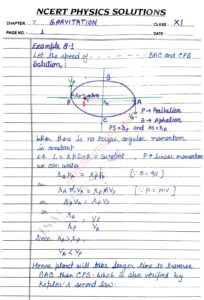 NCERT PHYSICS SOLUTIONS
CHAPTER : 7. GRAVITATION CLASS : XI
PAGE NO. : 1 DATE :
Example 8.1
Let the speed of BAC and CPB
Solution :
B
P S A
C
P → Perihelion
A → Aphelion
PS = rp AS = rA
When there is no torque, angular momentum
is constant
ie L = constant P → linear momentum
we can write
rA pA = rp pp
or rA m vA = rp m vp [∵ p = mv]
or rA vA = rp vp
or
Since rA > rp
vA < vp
Hence planet will take longer time to traverse
BAC than CPB. which is also verified by
Kepler's second law.